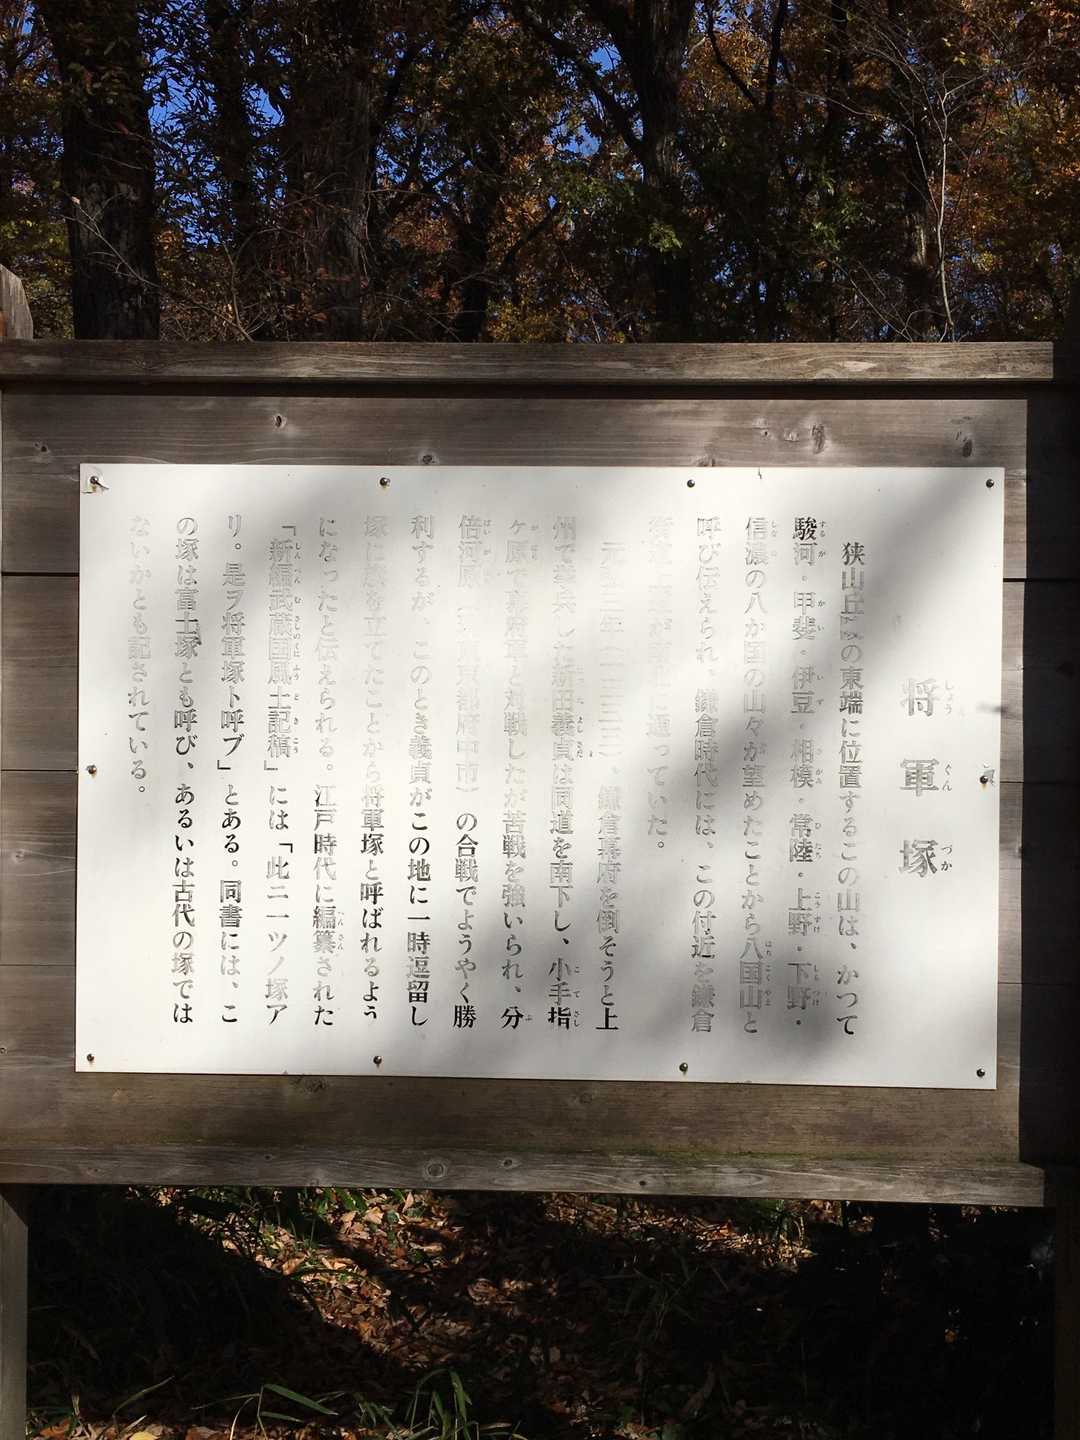 将軍塚
狭山丘陵の東端に位置するこの山は、かつて
駿河・甲斐・伊豆・相模・常陸・上野・下野・
信濃の八か国の山々が望めたことから八国山と
呼び伝えられ、鎌倉時代には、この付近を鎌倉
街道上道が南北に通っていた。
元弘三年（一三三三）、鎌倉幕府を倒そうと上
州で挙兵した新田義貞は同道を南下し、小手指
ヶ原で幕府軍と対戦したが苦戦を強いられ、分
倍河原（現東京都府中市）の合戦でようやく勝
利するが、このとき義貞がこの地に一時逗留し
塚に旗を立てたことから将軍塚と呼ばれるよう
になったと伝えられる。江戸時代に編纂された
「新編武蔵国風土記稿」には「此ニ一ツノ塚ア
リ。是ヲ将軍塚ト呼ブ」とある。同書には、こ
の塚は富士塚とも呼び、あるいは古代の塚では
ないかとも記されている。